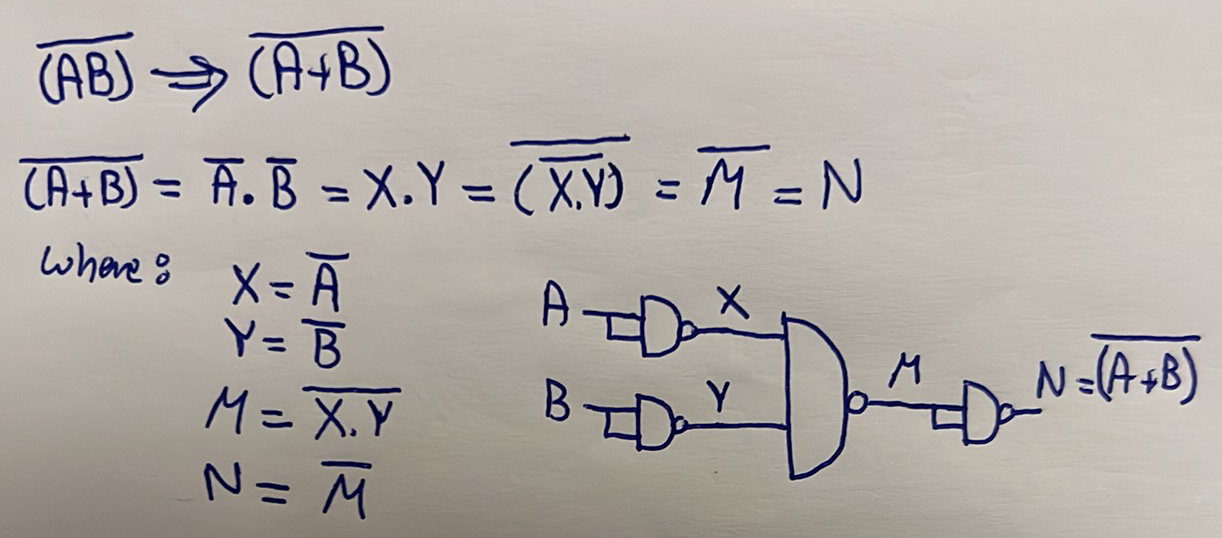 $\overline{(AB)} \Rightarrow \overline{(A+B)}$
$\overline{(A+B)} = \overline{A}.\overline{B} = X.Y = \overline{(\overline{X.Y})} = \overline{M} = N$
where:
$X = \overline{A}$
$Y = \overline{B}$
$M = \overline{X.Y}$
$N = \overline{M}$
A X
B Y
M
$N = \overline{(A+B)}$